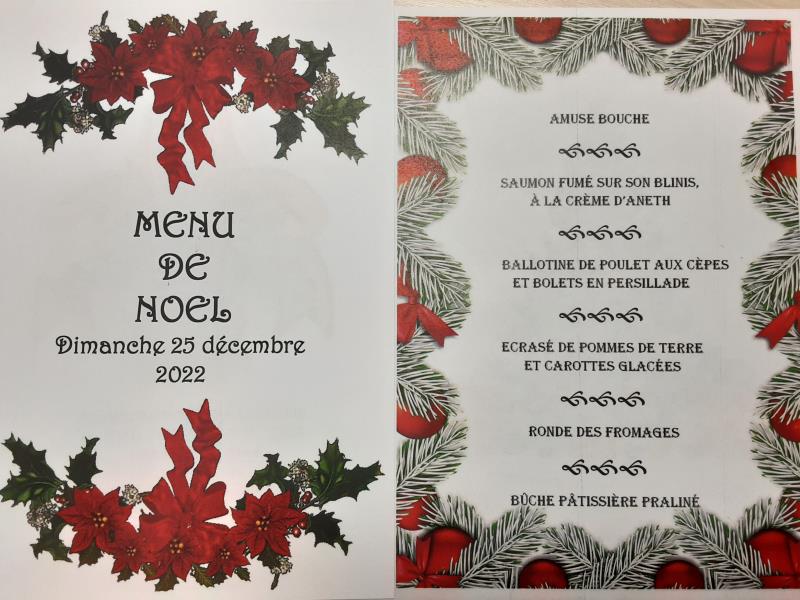 MENU
DE
NOEL
Dimanche 25 décembre
2022
AMUSE BOUCHE
SAUMON FUMÉ SUR SON BLINIS,
À LA CRÈME D'ANETH
BALLOTINE DE POULET AUX CÈPES
ET BOLETS EN PERSILLADE
ECRASÉ DE POMMES DE TERRE
ET CAROTTES GLACÉES
RONDE DES FROMAGES
BÛCHE PÂTISSIÈRE PRALINÉ